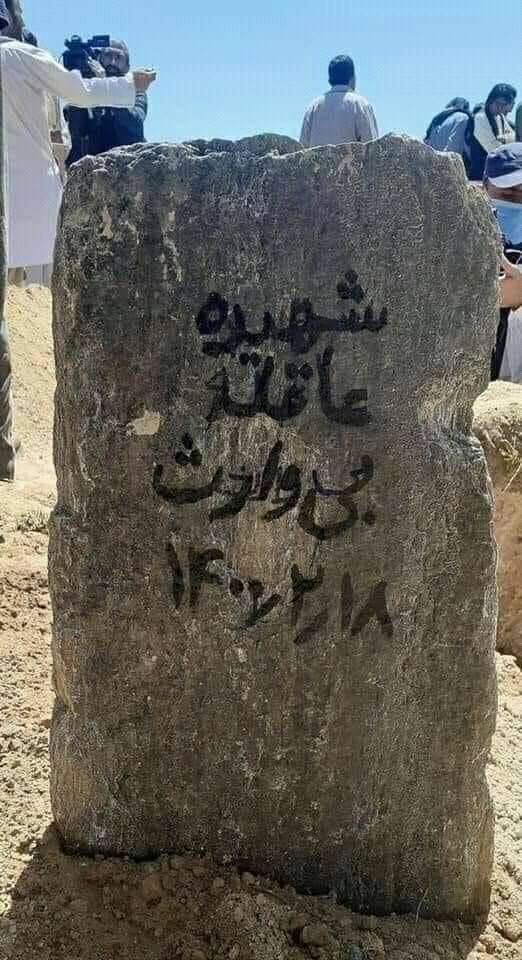 شهیده
عاقله
بی وارث
۱۴۰۰/۲/۱۸